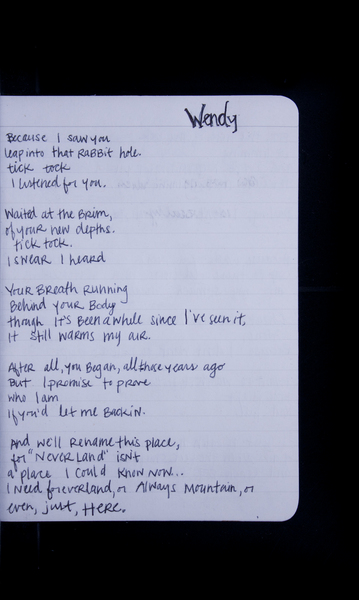 Wendy
Because I saw you
leap into that RaBBit hole.
tick tock
I listened for you.
Waited at the Brim,
of your new depths.
tick tock.
I swear I heard
Your Breath Running
Behind your Body
though It's Been a while since I've seen it,
It still warms my air.
After all, you Began, all those years ago
But I promise to prove
who I am
If you'd let me Back in.
And we'll rename this place,
for "NeverLand" isn't
a place I could know now...
I need foreverland, or Always Mountain, or
even, just, Here.